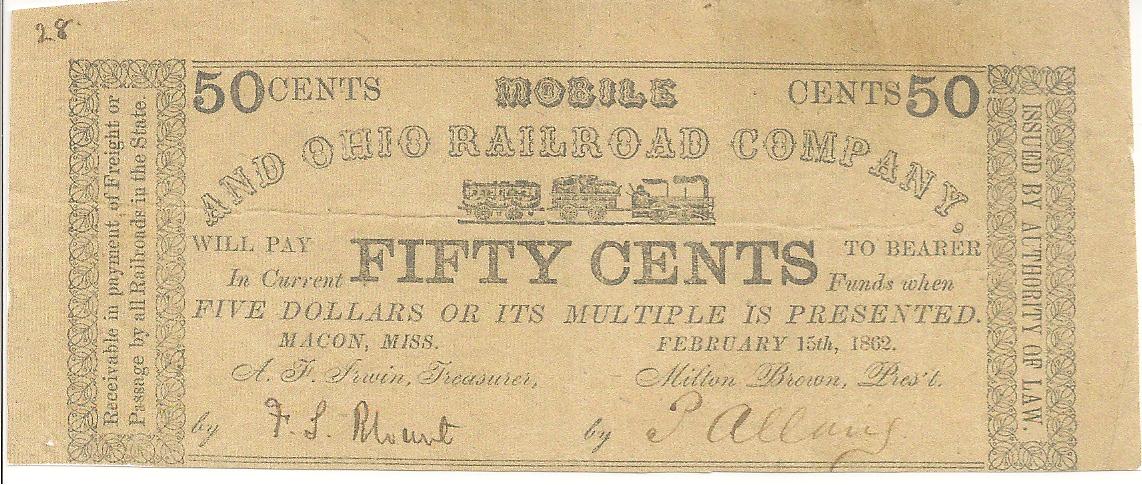 28
50 CENTS MOBILE CENTS 50
AND OHIO RAILROAD COMPANY,
WILL PAY FIFTY CENTS TO BEARER
In Current Funds when
FIVE DOLLARS OR ITS MULTIPLE IS PRESENTED.
MACON, MISS. FEBRUARY 15th, 1862.
A. F. Irwin, Treasurer, Milton Brown, Pres't.
by F. S. Blount by
Receivable in payment of Freight or
Passage by all Railroads in the State.
ISSUED BY AUTHORITY OF LAW.